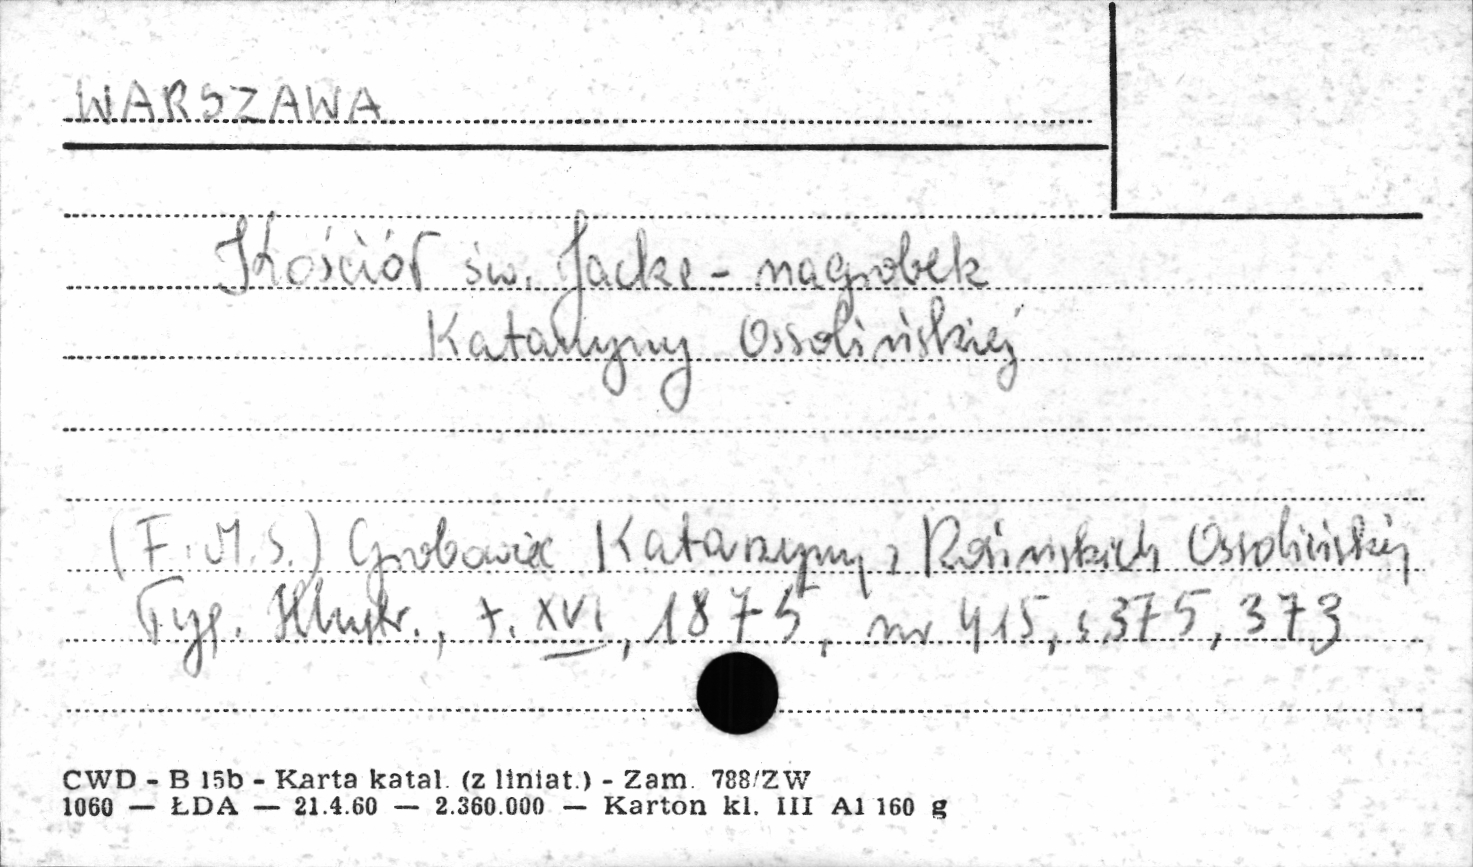 WARSZAWA
Kościół św. Jacka - nagrobek
Katarzyny Ossolińskiej
(F.M.S.) Grobowiec Katarzyny z Ossolińskiej
Tyg. Illustr., t. XVI, 1875, nr 415, s. 375, 373
CWD - B 15b - Karta katal. (z liniat.) - Zam. 788/ZW
1060 — ŁDA — 21.4.60 — 2.360.000 — Karton kl. III A1 160 g